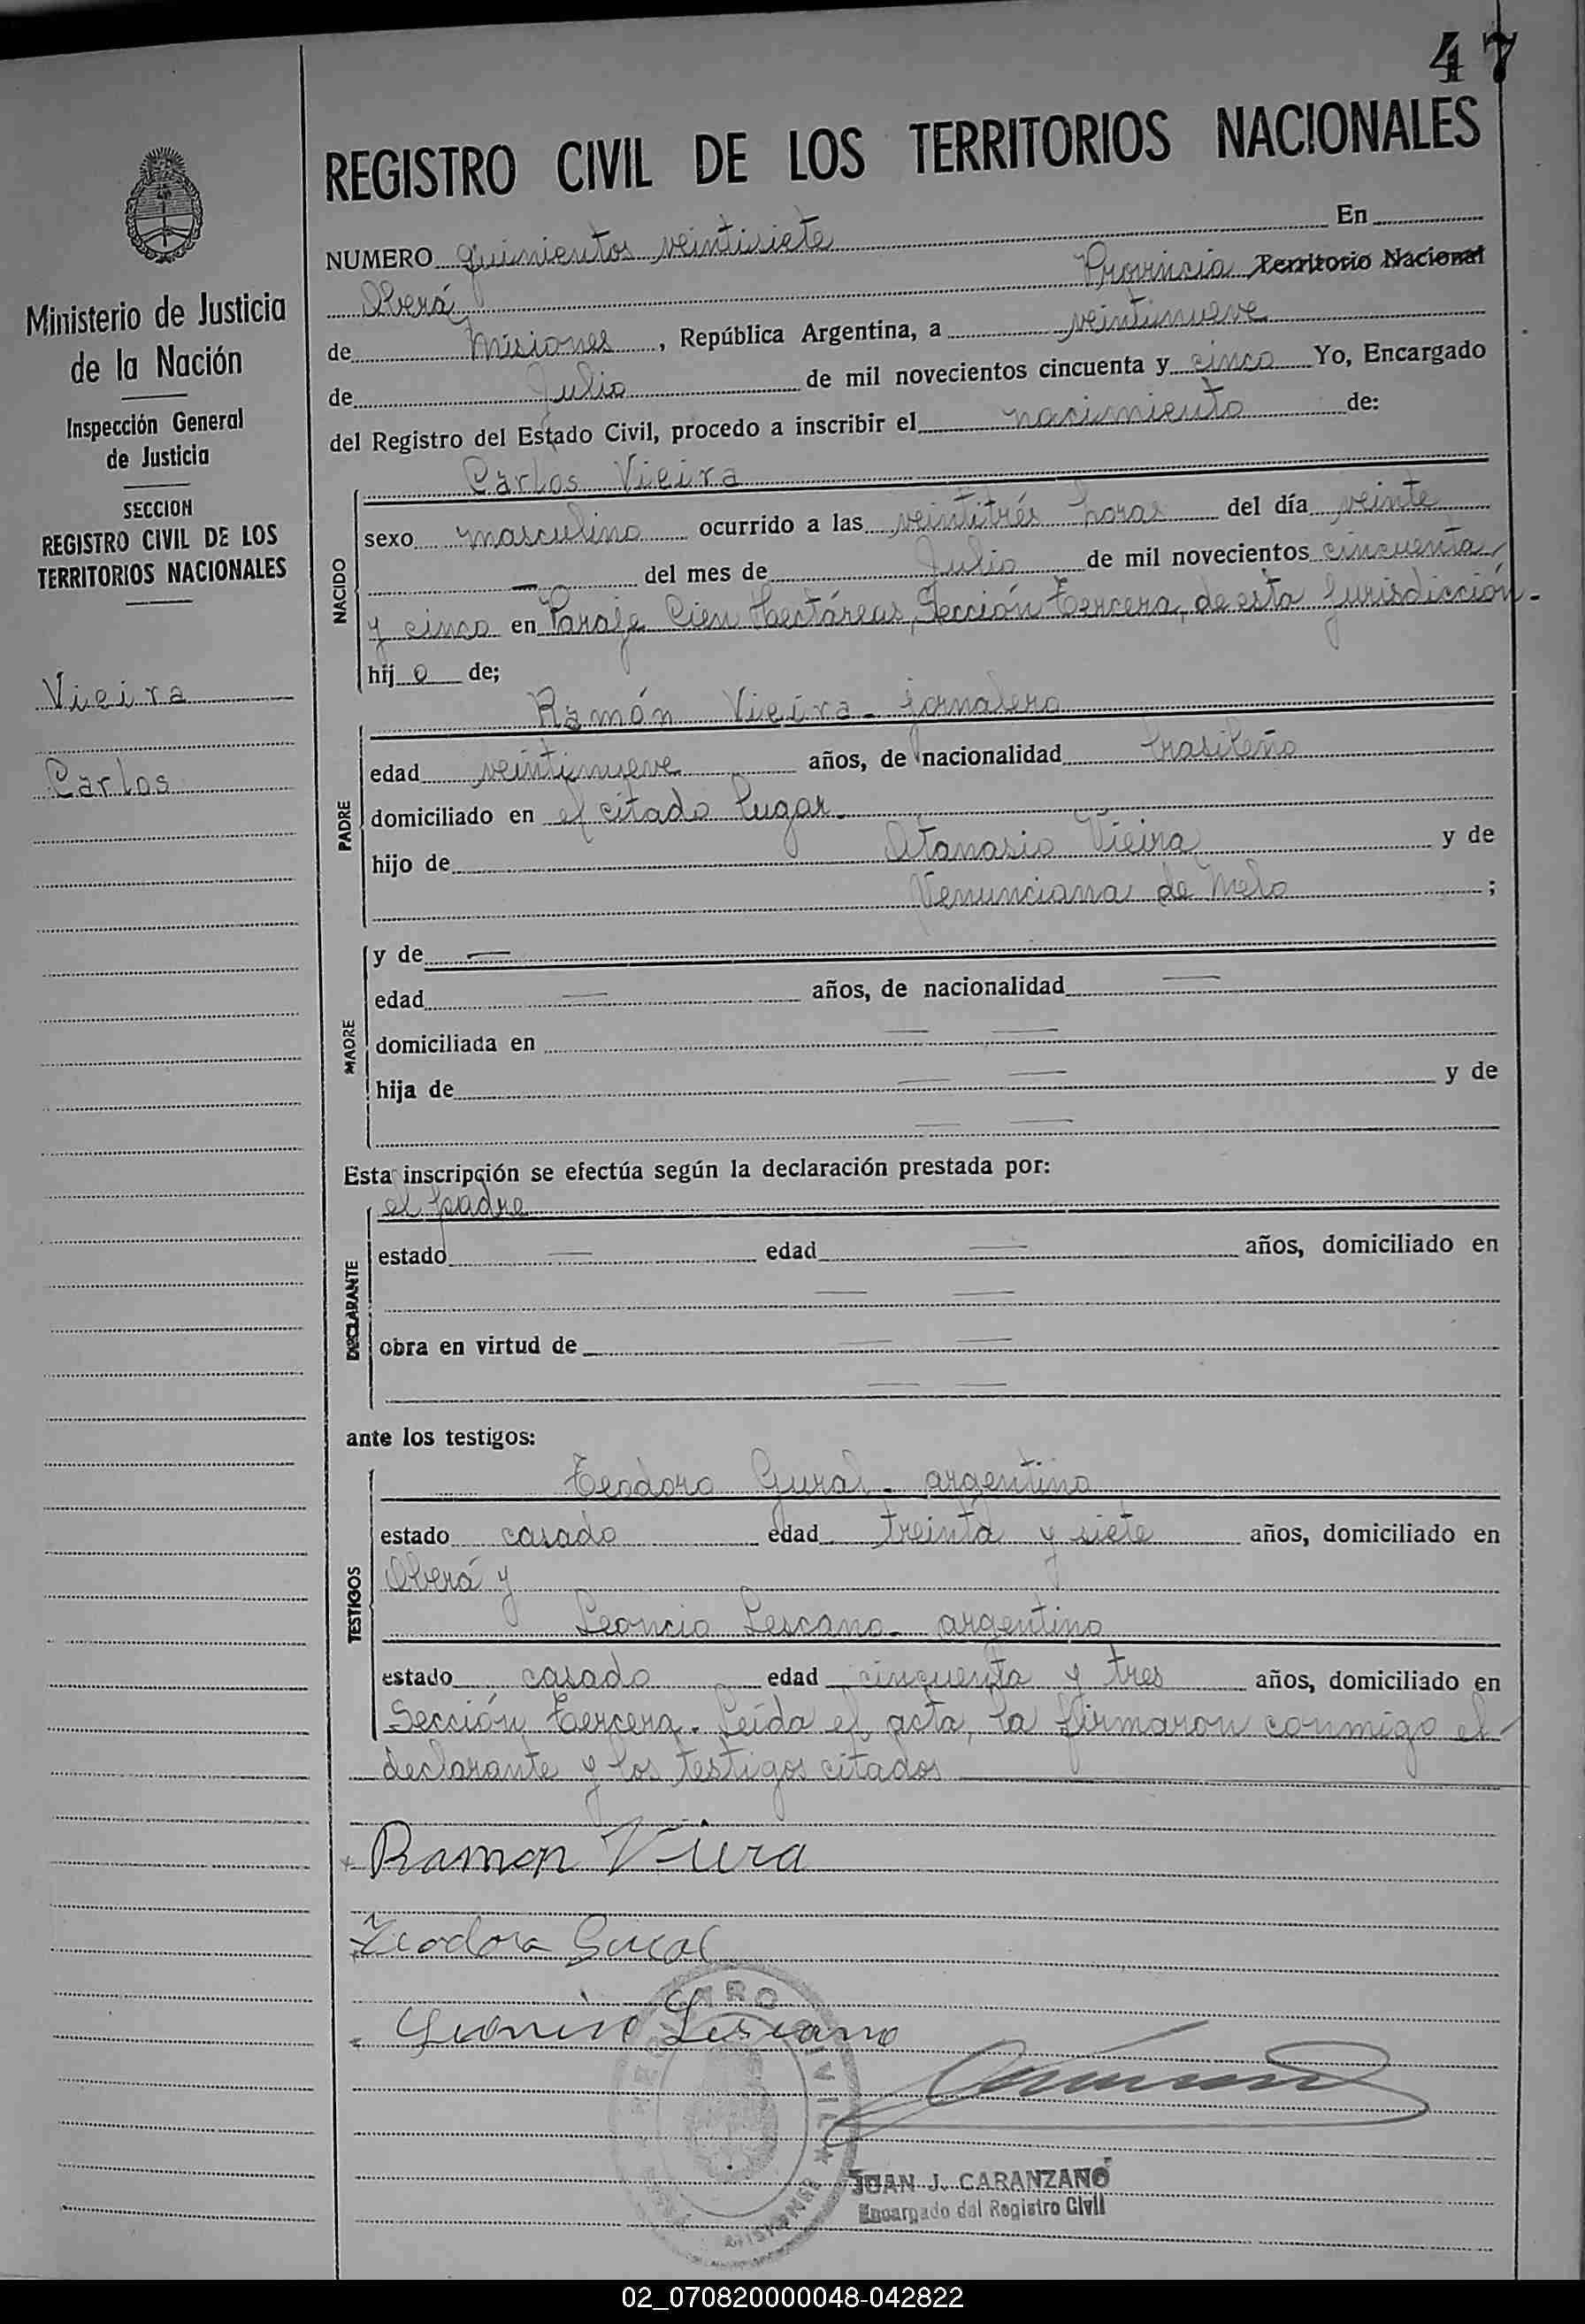 47
REGISTRO CIVIL DE LOS TERRITORIOS NACIONALES
Ministerio de Justicia
de la Nación
Inspección General
de Justicia
SECCION
REGISTRO CIVIL DE LOS
TERRITORIOS NACIONALES
Vieira
Carlos
NUMERO quinientos veintisiete En
Oberá Provincia Territorio Nacional
de Misiones, República Argentina, a veintinueve
de Julio de mil novecientos cincuenta y cinco Yo, Encargado
del Registro del Estado Civil, procedo a inscribir el nacimiento de:
NACIDO
Carlos Vieira
sexo masculino ocurrido a las veintitrés horas del día veinte
— del mes de Julio de mil novecientos cincuenta
y cinco en Paraje Cien Hectáreas, Sección Tercera, de esta Jurisdicción.-
hij o de;
PADRE
Ramón Vieira - jornalero
edad veintinueve años, de nacionalidad brasileño
domiciliado en el citado lugar.
hijo de Atanasio Vieira y de
Venunciana de Melo ;
MADRE
y de —
edad — años, de nacionalidad —
domiciliada en — —
hija de — — y de
— —
Esta inscripción se efectúa según la declaración prestada por:
el padre
DECLARANTE
estado — edad — años, domiciliado en
— —
obra en virtud de — —
— —
ante los testigos:
TESTIGOS
Teodoro Gural - argentino
estado casado edad treinta y siete años, domiciliado en
Oberá y
Leoncio Lescano - argentino
estado casado edad cincuenta y tres años, domiciliado en
Sección Tercera. Leída el acta, la firmaron conmigo el
declarante y los testigos citados
Ramon Viera
Teodoro Gural
Leoncio Lescano
REGISTRO CIVIL
MISIONES
JUAN J. CARANZANO
Encargado del Registro Civil
02_070820000048-042822